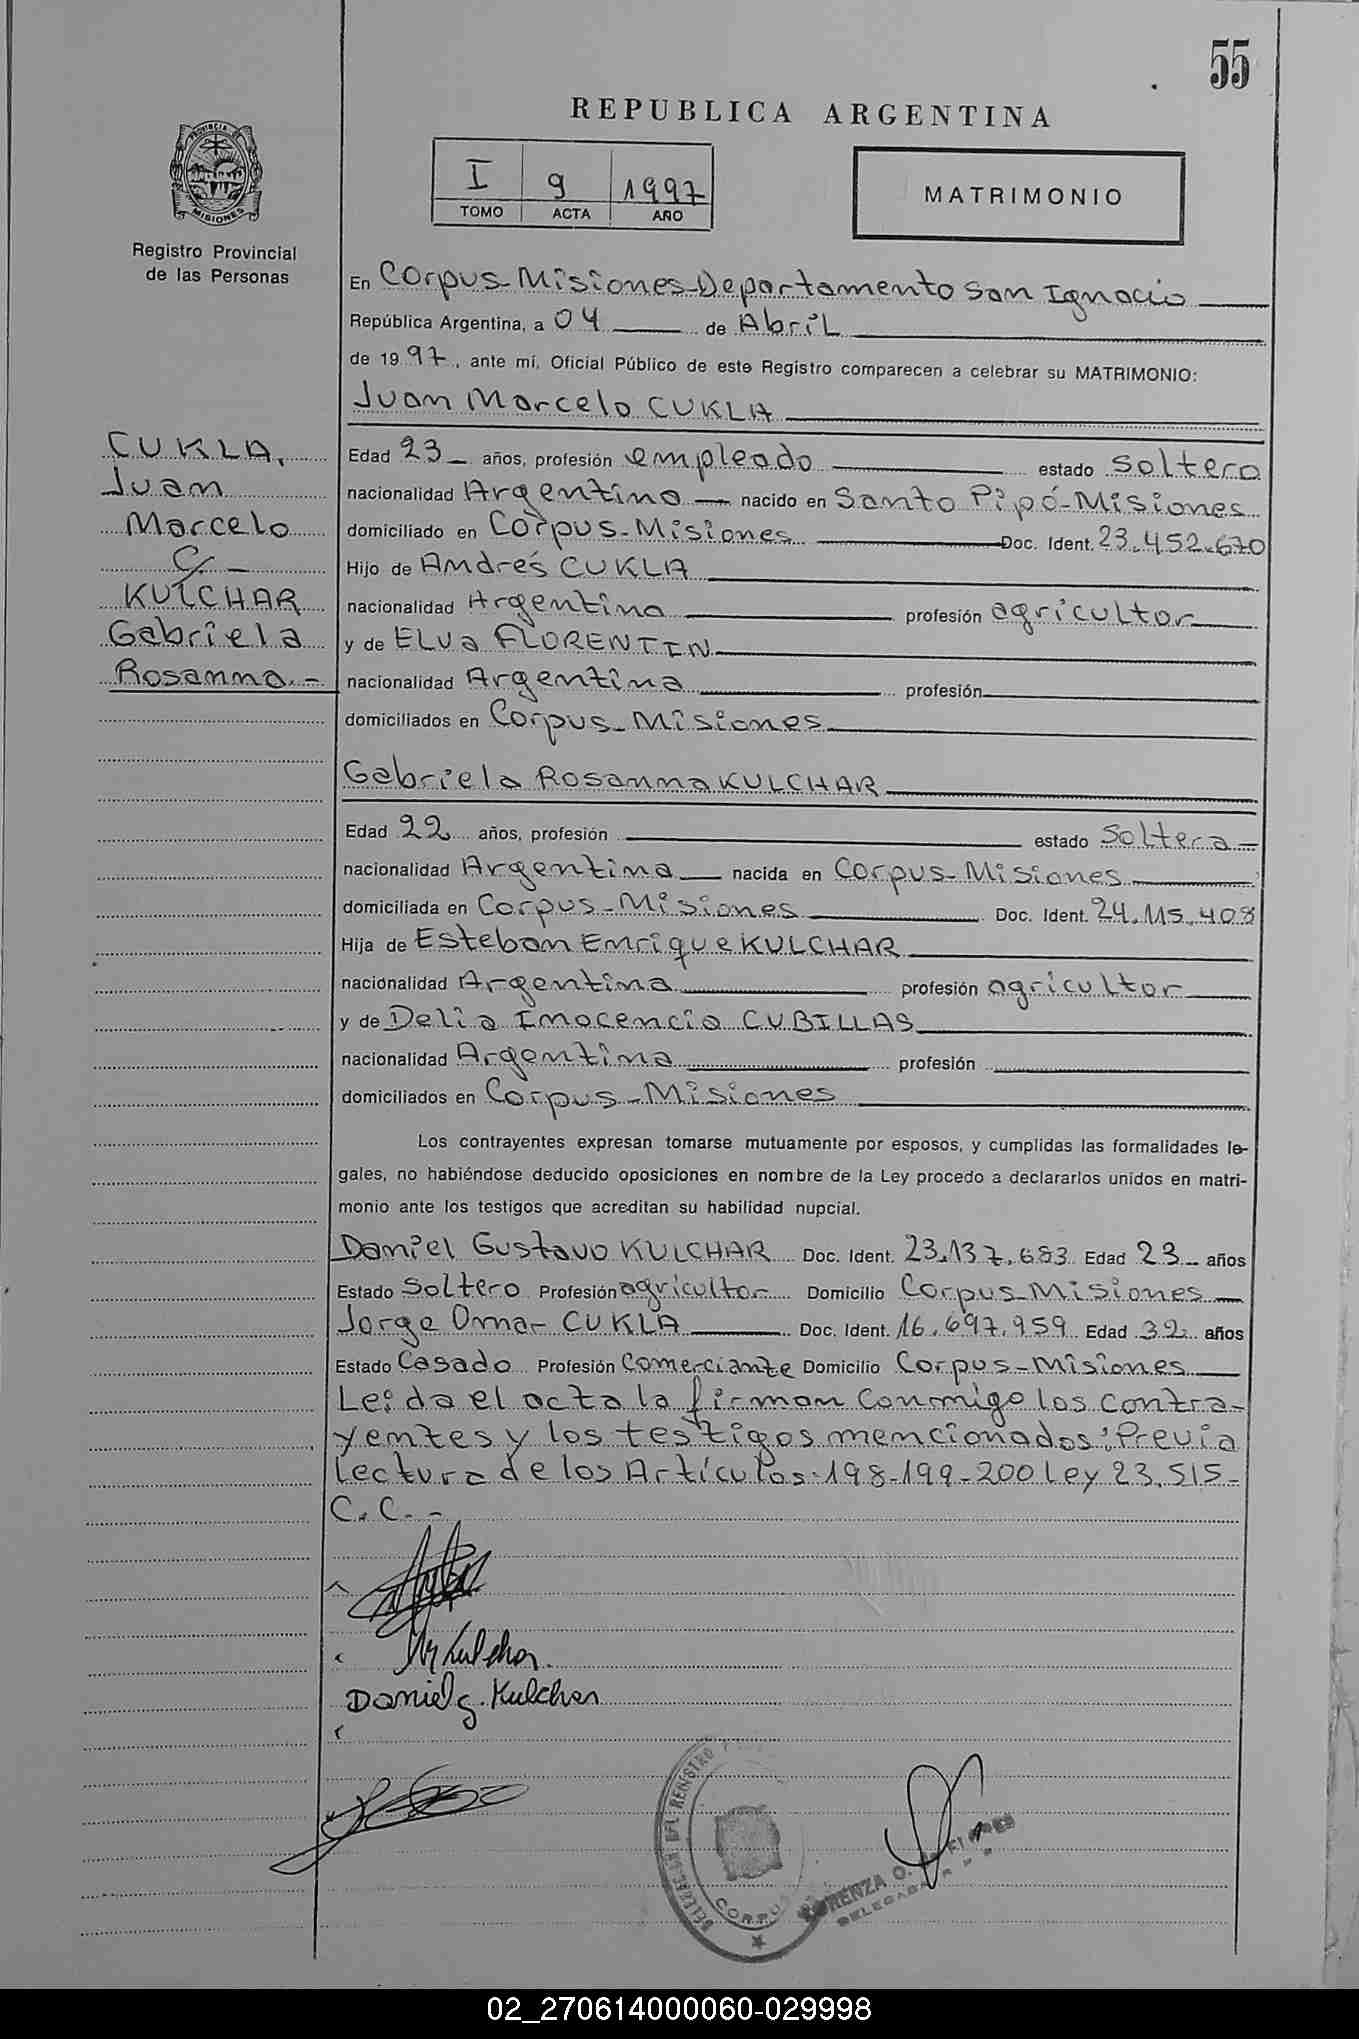 55
REPUBLICA ARGENTINA
I 9 1997
TOMO ACTA AÑO
MATRIMONIO
PROVINCIA DE
MISIONES
Registro Provincial
de las Personas
En Corpus-Misiones-Departamento San Ignacio
República Argentina, a 04 de Abril
de 1997, ante mí, Oficial Público de este Registro comparecen a celebrar su MATRIMONIO:
Juan Marcelo CUKLA
CUKLA,
Juan
Marcelo
C/-
KULCHAR
Gabriela
Rosanna.-
Edad 23 años, profesión empleado estado Soltero
nacionalidad Argentina nacido en Santo Pipó-Misiones
domiciliado en Corpus-Misiones Doc. Ident. 23.452.670
Hijo de Andrés CUKLA
nacionalidad Argentina profesión agricultor
y de ELva FLORENTIN
nacionalidad Argentina profesión
domiciliados en Corpus-Misiones
Gabriela Rosanna KULCHAR
Edad 22 años, profesión estado Soltera
nacionalidad Argentina nacida en Corpus-Misiones
domiciliada en Corpus-Misiones Doc. Ident. 24.115.403
Hija de Esteban Enrique KULCHAR
nacionalidad Argentina profesión agricultor
y de Delia Inocencia CUBILLAS
nacionalidad Argentina profesión
domiciliados en Corpus-Misiones
Los contrayentes expresan tomarse mutuamente por esposos, y cumplidas las formalidades le-
gales, no habiéndose deducido oposiciones en nombre de la Ley procedo a declararlos unidos en matri-
monio ante los testigos que acreditan su habilidad nupcial.
Daniel Gustavo KULCHAR Doc. Ident. 23.137.683 Edad 23 años
Estado Soltero Profesión agricultor Domicilio Corpus-Misiones
Jorge Omar CUKLA Doc. Ident. 16.697.959 Edad 32 años
Estado Casado Profesión Comerciante Domicilio Corpus-Misiones
Leida el acta la firman conmigo los contra-
yentes y los testigos mencionados; Previa
Lectura de los Artículos-198-199-200 Ley 23.515-
C.C.-
Kulchar.
Daniel G. Kulchar
DELEGACION DEL REGISTRO
CORPUS
LORENZA O. DE FLORES
DELEGADA
02_270614000060-029998